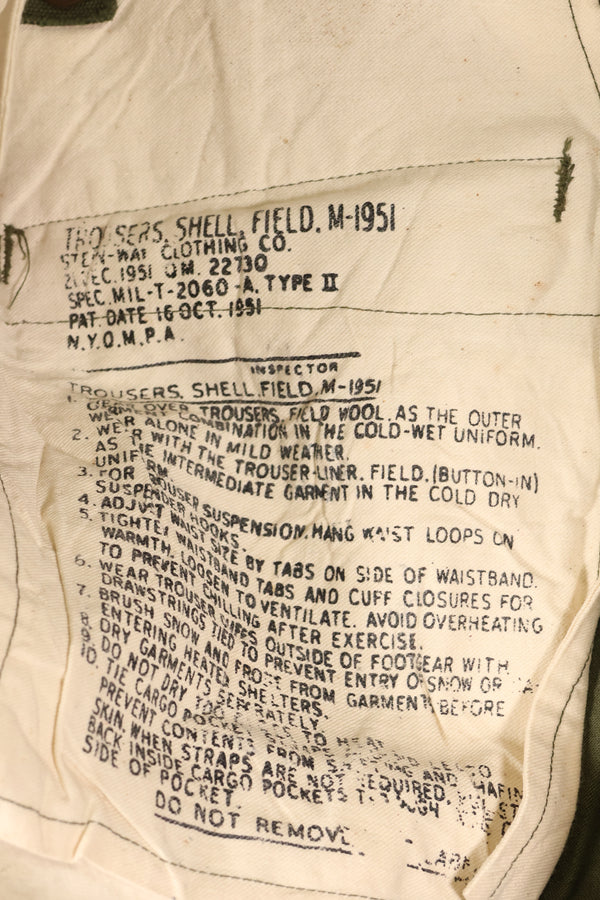 TROUSERS, SHELL, FIELD, M-1951
CLOTHING CO.
DEC. 1951 QM. 22730
SPEC. MIL-T-2060-A. TYPE II
PAT. DATE 16 OCT. 1951
N.Y.Q.M.P.A.
INSPECTOR
TROUSERS, SHELL, FIELD, M-1951
1. TROUSERS, FIELD WOOL. AS THE OUTER
COMBINATION IN THE COLD-WET UNIFORM.
WEAR ALONE IN MILD WEATHER.
2. WITH THE TROUSER-LINER, FIELD, (BUTTON-IN)
AS INTERMEDIATE GARMENT IN THE COLD DRY
3. FOR TROUSER SUSPENSION. HANG WAIST LOOPS ON
SUSPENDER HOOKS.
4. ADJUST WAIST SIZE BY TABS ON SIDE OF WAISTBAND.
5. TIGHTEN WAISTBAND TABS AND CUFF CLOSURES FOR
WARMTH. LOOSEN TO VENTILATE. AVOID OVERHEATING
TO PREVENT CHILLING AFTER EXERCISE.
6. WEAR TROUSER OUTSIDE OF FOOTGEAR WITH
DRAWSTRINGS TIED TO PREVENT ENTRY OF SNOW OR
7. BRUSH SNOW AND FROST FROM GARMENT BEFORE
ENTERING HEATED SHELTERS.
8. DRY GARMENTS SEPERATELY.
9. DO NOT DRY TO
10. TIE CARGO POCKET
PREVENT CONTENTS FROM AND CHAFING
SKIN WHEN STRAPS ARE NOT REQUIRED.
BACK INSIDE CARGO POCKETS
SIDE OF POCKET.
DO NOT REMOVE